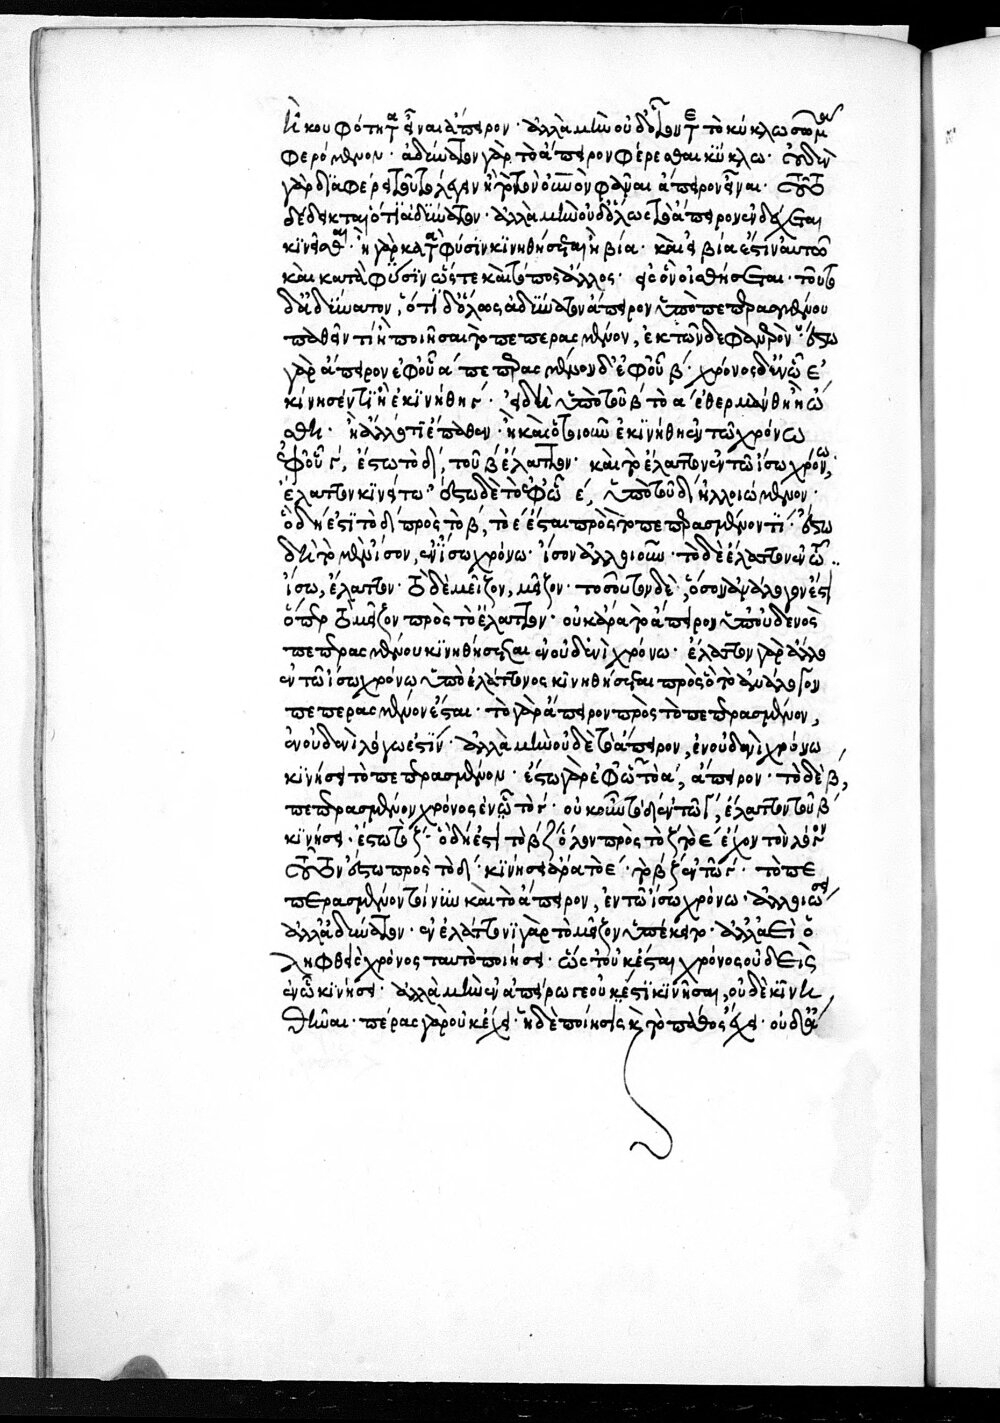 ἢ κουφότητα εἶναι ἄπειρον· ἀλλὰ μὴν οὐδ' οἷόν τε τὸ κύκλω σῶμα
φερόμενον· ἀδύνατον γὰρ τὸ ἄπειρον φέρεσθαι κύκλω· οὐδὲν
γὰρ διαφέρει τοῦτο λέγειν ἢ τὸ τὸν οὐρανὸν φᾶναι ἄπειρον εἶναι· τοῦτο
δέδεικται ὅτι ἀδύνατον· ἀλλὰ μὴν οὐδ' ὅλως τὸ ἄπειρον ἐνδέχεται
κινεῖσθαι· ἢ γὰρ κατὰ φύσιν κινηθήσεται ἢ βία· καὶ εἰ βία ἔστιν αὐτῶ
καὶ κατὰ φύσιν ὥστε καὶ τόπος ἄλλος· εἰς ὃν οἰσθήσεται· τοῦτο
δ' ἀδύνατον, ὅτι δ' ὅλως ἀδύνατον ἄπειρον ὑπὸ πεπερασμένου
παθεῖν τι ἢ ποιῆσαι τὸ πεπερασμένον, ἐκ τῶνδε φανερὸν· ἔστω
γὰρ ἄπειρον ἐφ' οὗ α πεπερασμένον δ' ἐφ' οὗ β· χρόνος δ' ἐν ὧ ἐ
κίνησέν τι ἢ ἐκινήθη γ· εἰ δὴ ὑπὸ τοῦ β τὸ α ἐθερμάνθη ἢ ὤ
σθη· ἢ ἄλλό τι ἔπαθεν· ἢ καὶ ὁτιοῦν ἐκινήθη ἐν τῶ χρόνω
ἐφ' οὗ γ, ἔστω τὸ δ, τοῦ β ἔλαττον· καὶ τὸ ἔλαττον ἐν τῶ ἴσω χρόνω,
ἔλαττον κινείτω· ἔστω δὲ τὸ ἐφ' ὧ ε, ὑπὸ τοῦ δ ἠλλοιωμένον·
ὃ δή ἐστι τὸ δ πρὸς τὸ β, τὸ ε ἔσται πρὸς τὸ πεπερασμένον τι· ἔστω
δὴ τὸ μὲν ἴσον, ἐν ἴσω χρόνω· ἴσον ἀλλοιοῦν· τὸ δὲ ἔλαττον ἐν τῶ
ἴσω, ἔλαττον· τὸ δὲ μεῖζον, μεῖζον· τοσοῦτον δὲ, ὅσον ἀνάλογον ἐστὶ
ὅπερ τὸ μεῖζον πρὸς τὸ ἔλαττον· οὐκ ἄρα τὸ ἄπειρον ὑπ' οὐδενὸς
πεπερασμένου κινηθήσεται ἐν οὐδενὶ χρόνω· ἔλαττον γὰρ ἄλλο
ἐν τῶ ἴσω χρόνω ὑπὸ ἐλάττονος κινηθήσεται πρὸς ὃ τὸ ἀνάλογον
πεπερασμένον ἔσται· τὸ γὰρ ἄπειρον πρὸς τὸ πεπερασμένον,
ἐν οὐδενὶ λόγω ἐστίν· ἀλλὰ μὴν οὐδὲ τὸ ἄπειρον, ἐν οὐδενὶ χρόνω
κινήσει τὸ πεπερασμένον· ἔστω γὰρ ἐφ' ὧ τὸ α, ἄπειρον· τὸ δὲ β,
πεπερασμένον χρόνος ἐν ὧ τὸ γ· οὐκοῦν τὸ δ ἐν τῶ γ, ἔλαττον τοῦ β
κινήσει· ἔστω τὸ ζ· ὃ δή ἐστι τὸ βζ ὅλον πρὸς τὸ ζ τὸ ε ἔχον τὸν λόγον
τοῦτον ἔστω πρὸς τὸ δ· κινήσει ἄρα τὸ ε· τὸ βζ ἐν τῶ γ· τὸ πε
περασμένον τοίνυν καὶ τὸ ἄπειρον, ἐν τῶ ἴσω χρόνω· ἀλλοιώσει
ἀλλ' ἀδύνατον· ἐν ἐλάττονι γὰρ τὸ μεῖζον ὑπέκειτο· ἀλλ' ἀεὶ ὁ
ληφθεὶς χρόνος ταυτὸ ποιήσει· ὥστ' οὐκ ἔσται χρόνος οὐδεὶς
ἐν ὧ κινήσει· ἀλλὰ μὴν ἐν ἀπείρω γε οὐκ ἔστι κινῆσαι, οὐδὲ κινη
θῆναι· πέρας γὰρ οὐκ ἔχει· ἡ δὲ ποίησις καὶ τὸ πάθος ἔχει· οὐδ' ἄ